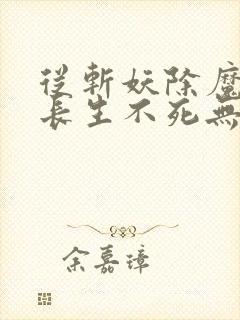 從斬妖除魔
長生不死無
余嘉璋